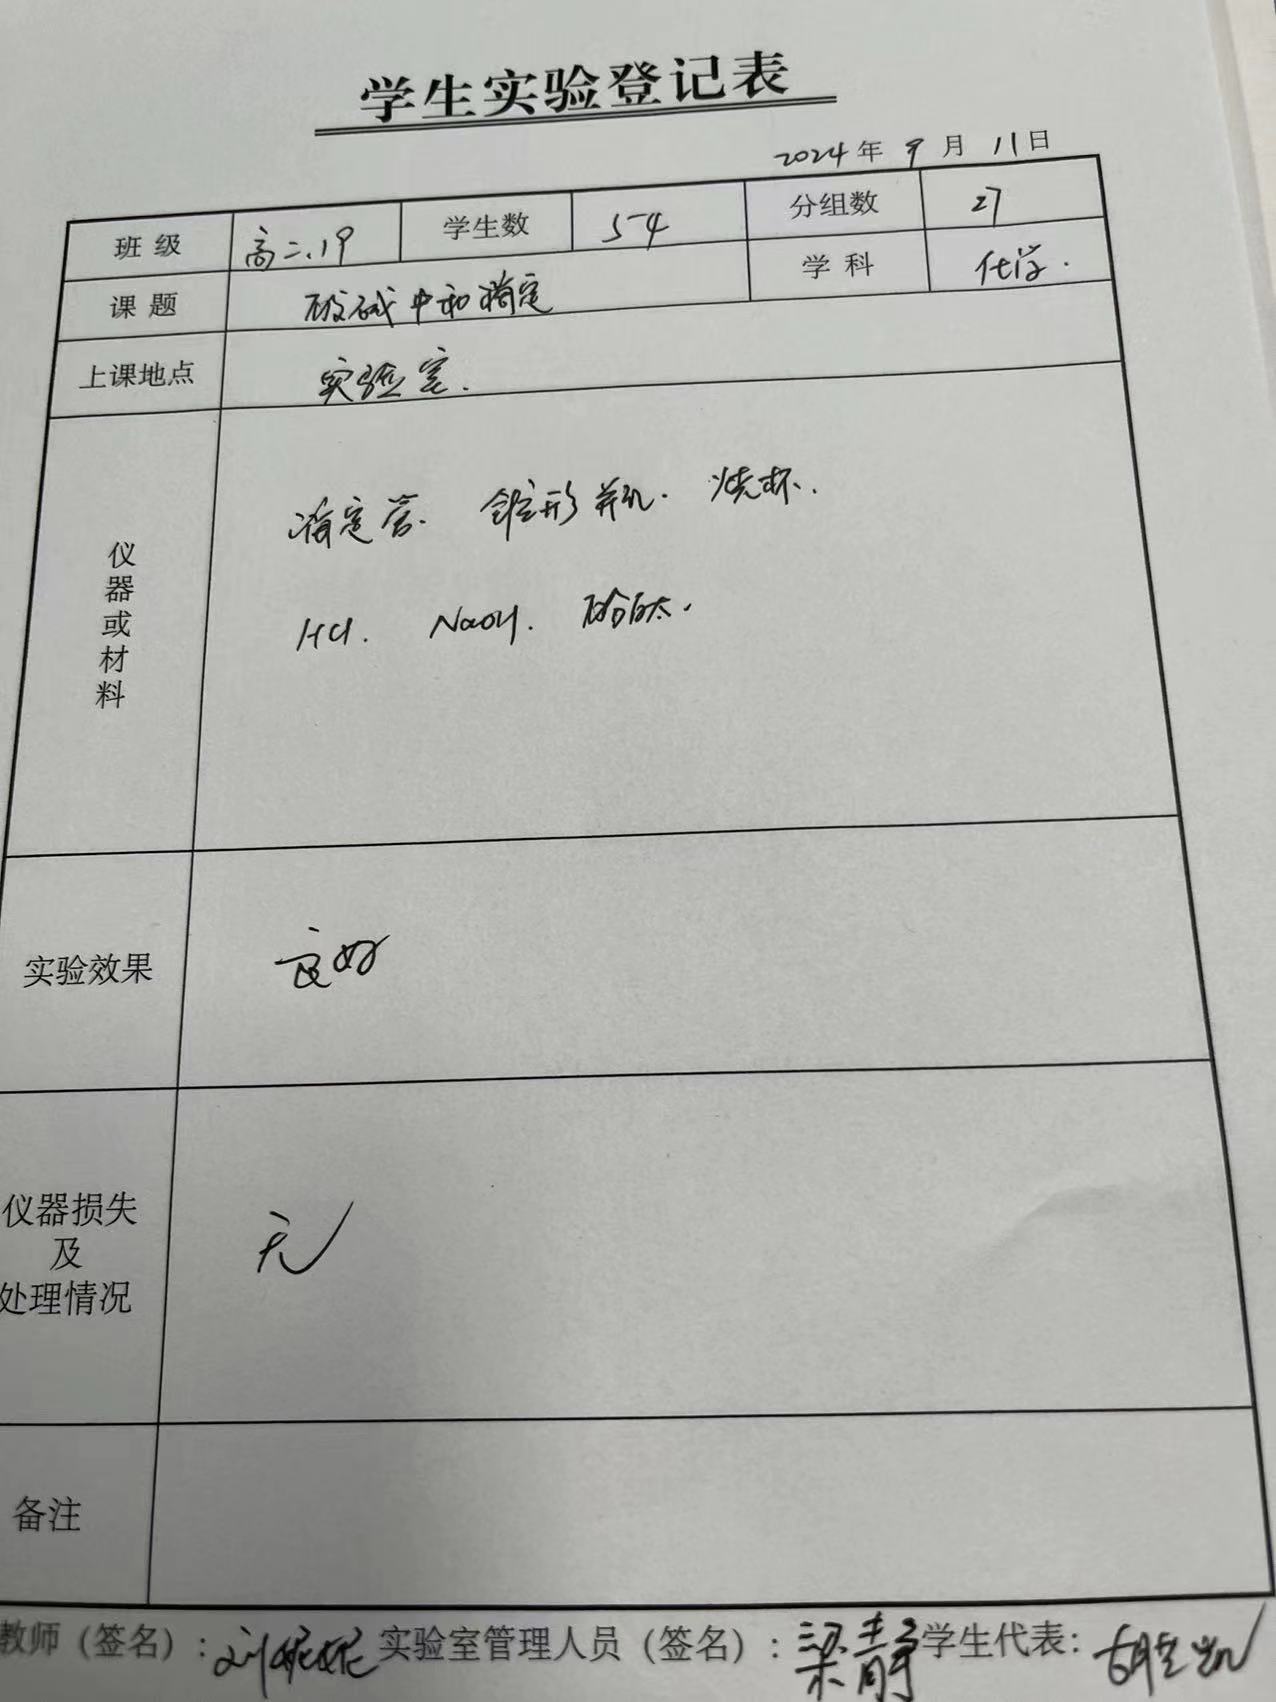 学生实验登记表
2024年9月11日
班级 高二.19 学生数 54 分组数 27
课题 酸碱中和滴定 学科 化学.
上课地点 实验室.
仪器或材料
滴定管. 锥形瓶. 烧杯.
HCl. NaOH. 酚酞.
实验效果 良好
仪器损失
及
处理情况
无
备注
教师（签名）: 刘妮妮 实验室管理人员（签名）: 梁静 学生代表: